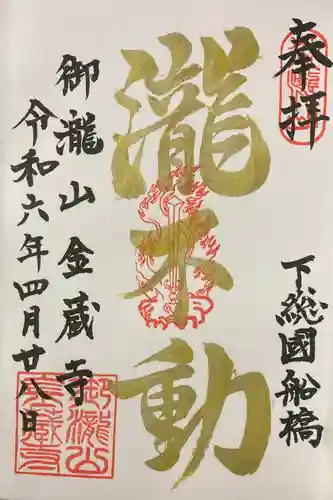 奉拝
下総國船橋
瀧不動
御瀧山金蔵寺
令和六年四月廿八日
御瀧山
金蔵寺